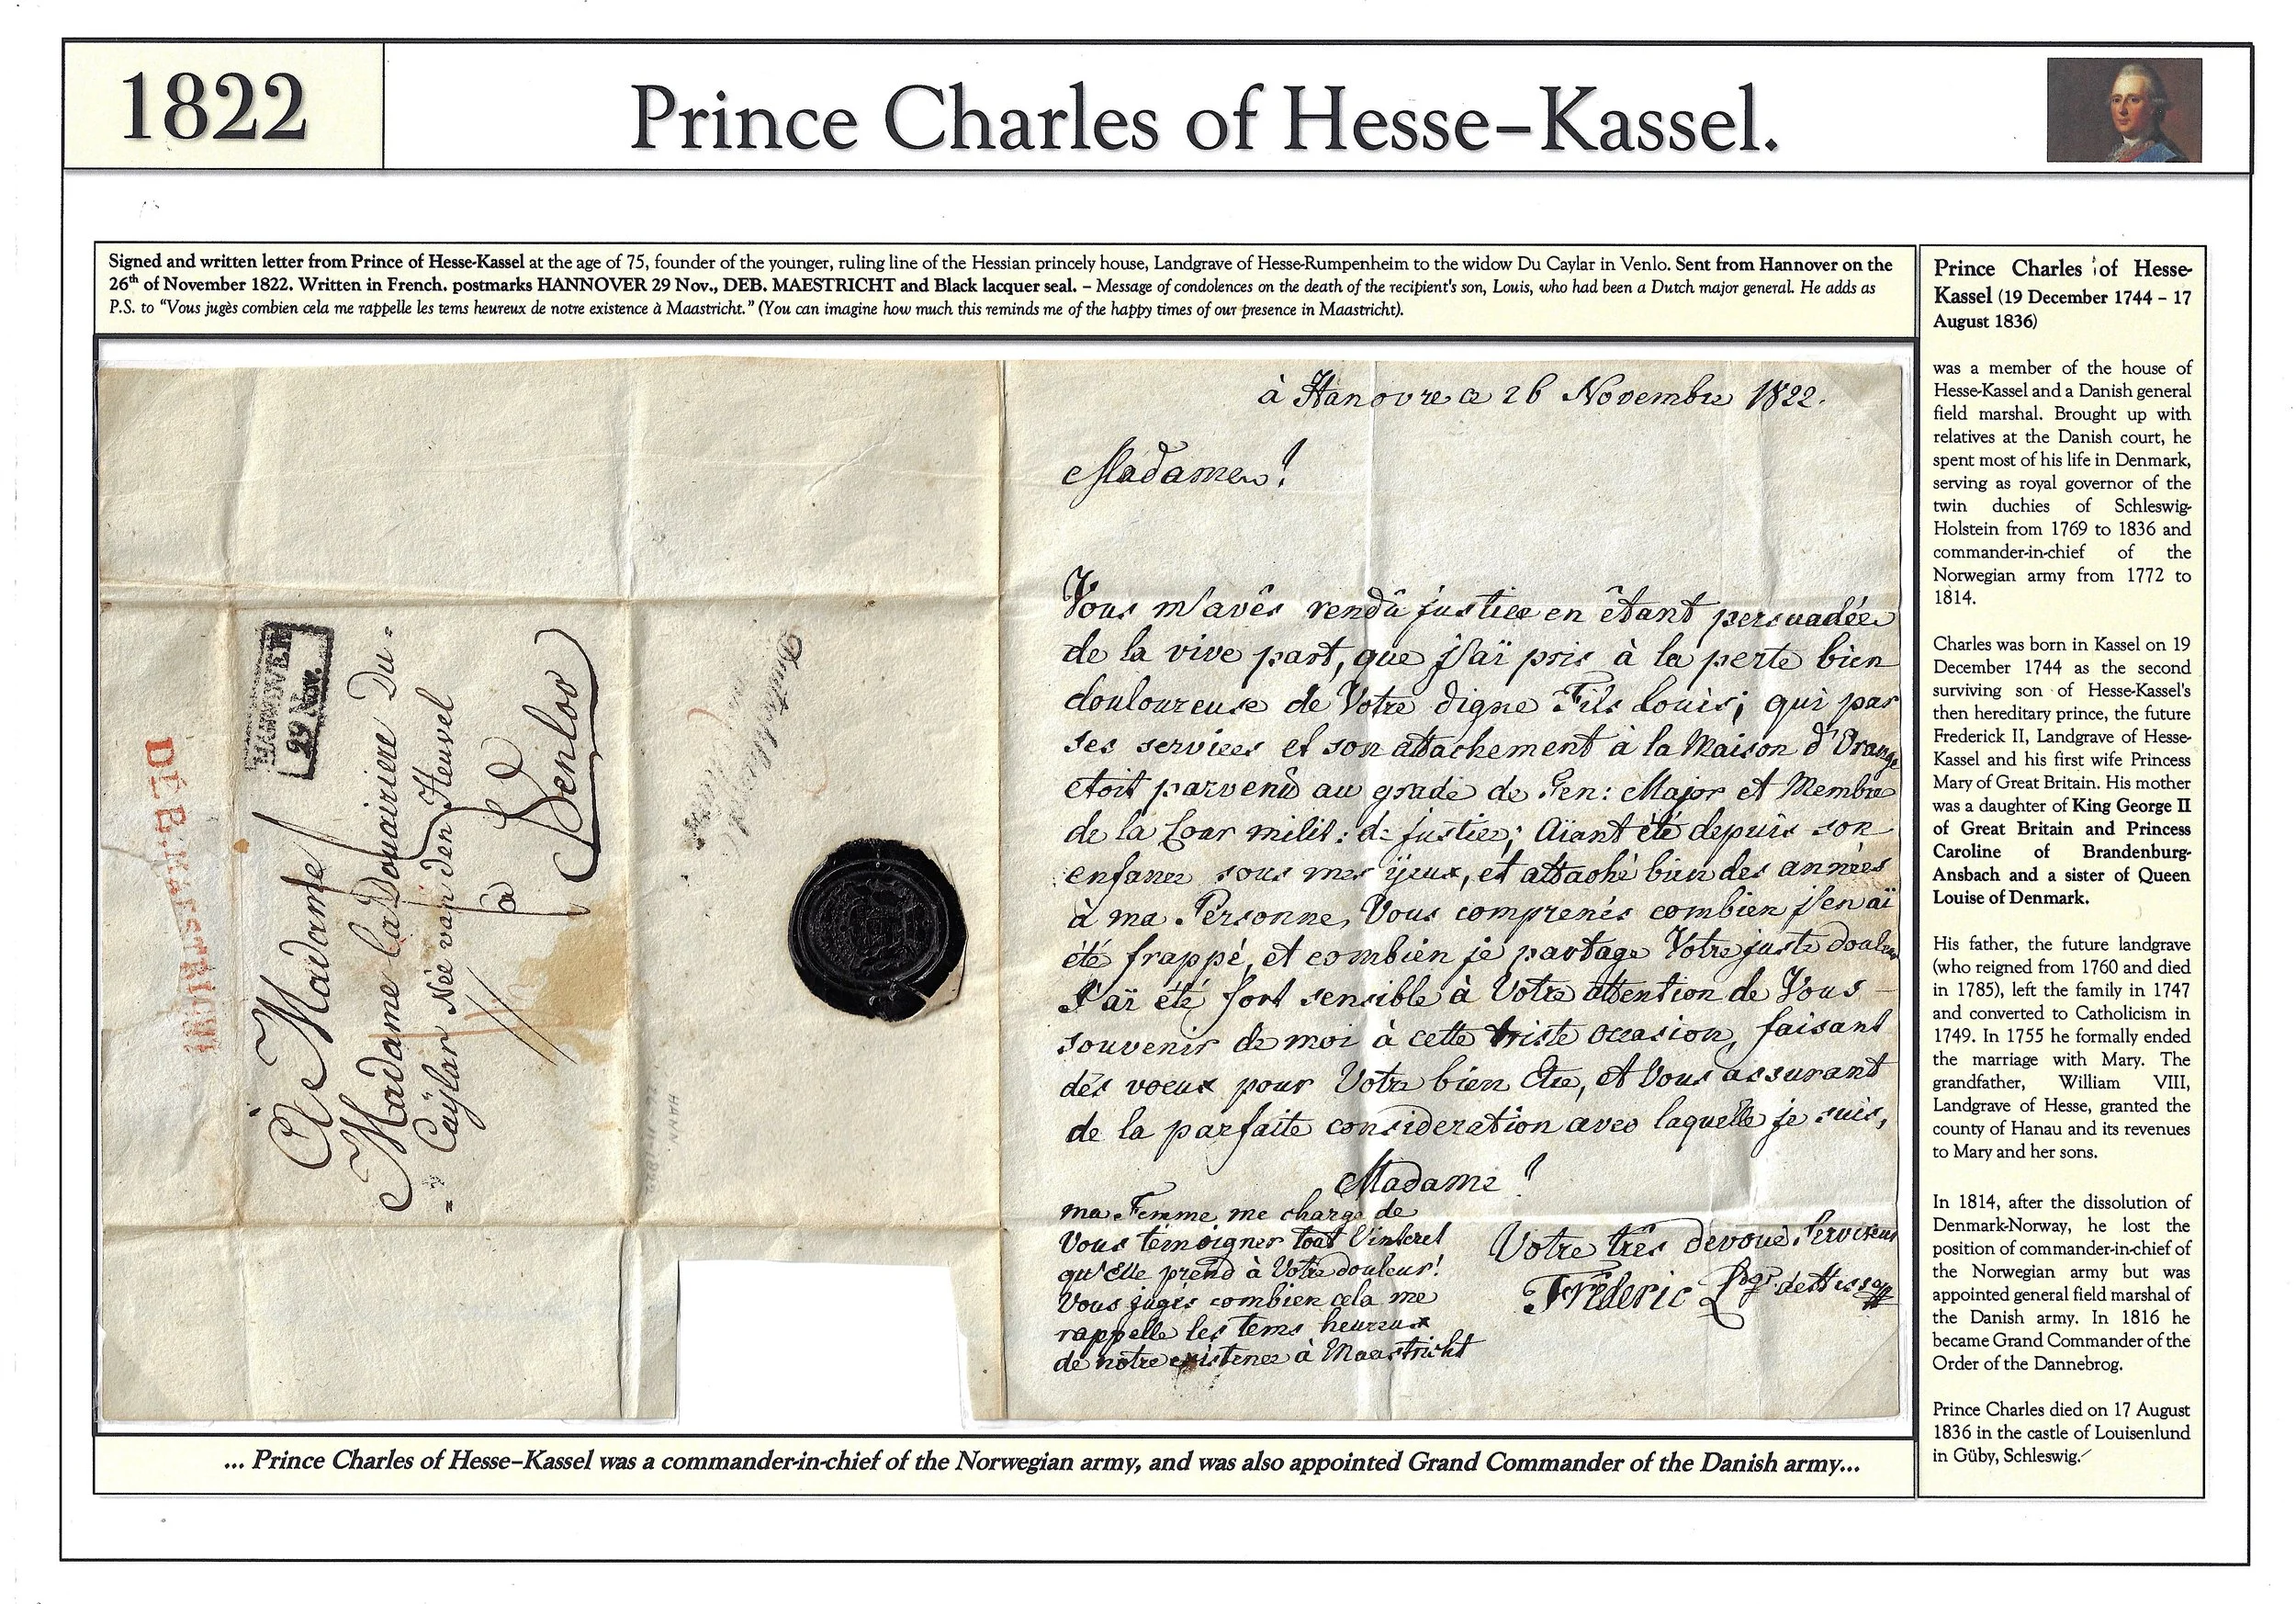 1822
Prince Charles of Hesse–Kassel.
Signed and written letter from Prince of Hesse-Kassel at the age of 75, founder of the younger, ruling line of the Hessian princely house, Landgrave of Hesse-Rumpenheim to the widow Du Caylar in Venlo. Sent from Hannover on the
26th of November 1822. Written in French. postmarks HANNOVER 29 Nov., DEB. MAESTRICHT and Black lacquer seal. – Message of condolences on the death of the recipient's son, Louis, who had been a Dutch major general. He adds as
P.S. to "Vous jugès combien cela me rappelle les tems heureux de notre existence à Maastricht." (You can imagine how much this reminds me of the happy times of our presence in Maastricht).
DEB. MAESTRICHT
HANNOVER
29 Nov.
A Madame
Madame la Douairiere Du=
= Caÿlar Née van den Heuvel
à
Venloo
HANN
à Hanovre ce 26 Novembre 1822.
Madame!
Vous m'avés rendû justice en êtant persuadée
de la vive part, que j'ai pris à la perte bien
douloureuse de Votre digne Fils Louis; qui par
ses services et son attachement à la Maison d'Orange
etoit parvenû au grade de Gen: Major et Membre
de la Cour milit: de justice; Aïant été depuis son
enfance sous mes ÿeux, et attaché bien des années
à ma Personne, Vous comprenés combien j'en ai
été frappé, et combien je partage Votre juste douleur
J'ai été fort sensible à Votre attention de Vous
souvenir de moi à cette triste occasion, faisant
des voeux pour Votre bien Etre, et Vous assurant
de la parfaite consideration avec laquelle je suis,
Madame!
ma Femme me charge de
Vous têmoigner tout l'interet
qu'Elle prend à Votre douleur!
Vous jugés combien cela me
rappelle les tems heureux
de notre existence à Maastricht
Votre três devoué Serviteur
Frêderic Ldgr. de Hesse
Prince Charles of Hesse-
Kassel (19 December 1744 – 17
August 1836)
was a member of the house of
Hesse-Kassel and a Danish general
field marshal. Brought up with
relatives at the Danish court, he
spent most of his life in Denmark,
serving as royal governor of the
twin duchies of Schleswig-
Holstein from 1769 to 1836 and
commander-in-chief of the
Norwegian army from 1772 to
1814.
Charles was born in Kassel on 19
December 1744 as the second
surviving son of Hesse-Kassel's
then hereditary prince, the future
Frederick II, Landgrave of Hesse-
Kassel and his first wife Princess
Mary of Great Britain. His mother
was a daughter of King George II
of Great Britain and Princess
Caroline of Brandenburg-
Ansbach and a sister of Queen
Louise of Denmark.
His father, the future landgrave
(who reigned from 1760 and died
in 1785), left the family in 1747
and converted to Catholicism in
1749. In 1755 he formally ended
the marriage with Mary. The
grandfather, William VIII,
Landgrave of Hesse, granted the
county of Hanau and its revenues
to Mary and her sons.
In 1814, after the dissolution of
Denmark-Norway, he lost the
position of commander-in-chief of
the Norwegian army but was
appointed general field marshal of
the Danish army. In 1816 he
became Grand Commander of the
Order of the Dannebrog.
Prince Charles died on 17 August
1836 in the castle of Louisenlund
in Güby, Schleswig.
... Prince Charles of Hesse–Kassel was a commander-in-chief of the Norwegian army, and was also appointed Grand Commander of the Danish army...